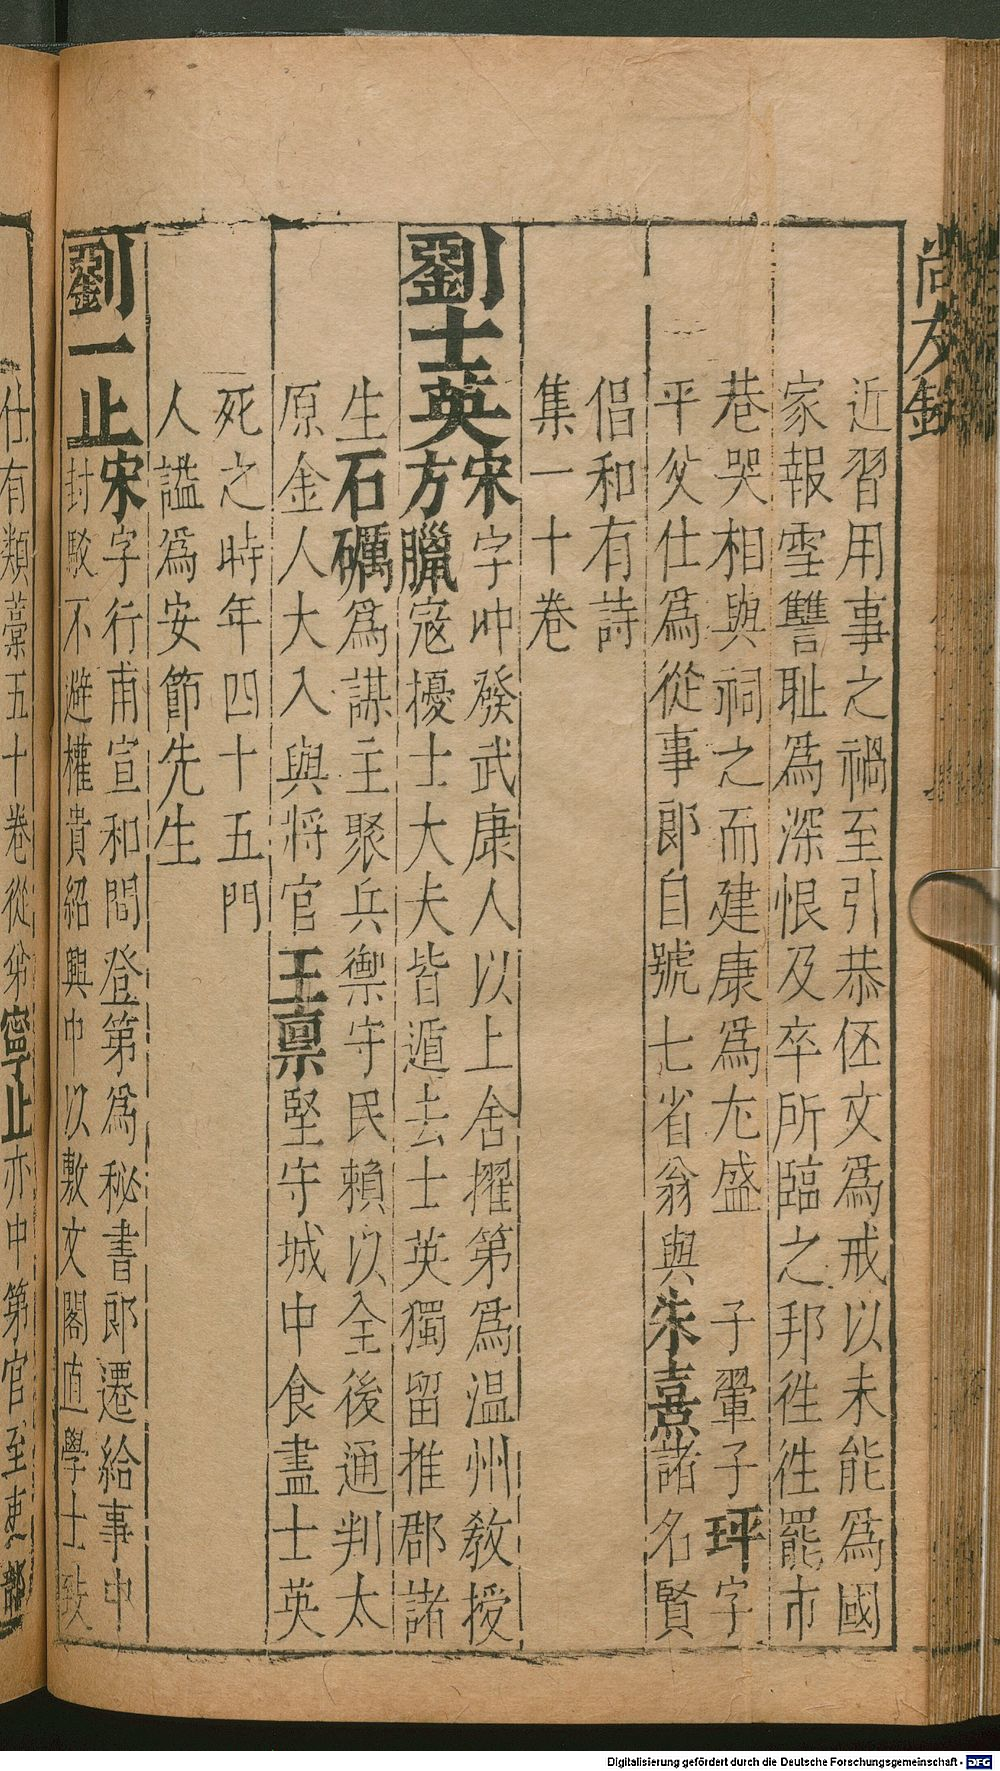 尚友錄
近習用事之禍至引恭伾文為戒以未能為國
家報雪讐耻為深恨及卒所臨之邦徃徃罷市
巷哭相與祠之而建康為尤盛　子翬子玶字
平父仕為從事郎自號七省翁與朱熹諸名賢
倡和有詩
集一十卷
劉士英宋字仲發武康人以上舍擢第為温州教授
方臘寇擾士大夫皆遁去士英獨留推郡諸
生石礪為謀主聚兵禦守民賴以全後通判太
原金人大入與将官王禀堅守城中食盡士英
死之時年四十五門
人謚為安節先生
劉一止宋字行甫宣和間登第為秘書郎遷給事中
封駁不避權貴紹興中以敷文閣直學士致
仕有類藁五十卷從弟寧止亦中第官至吏部
Digitalisierung gefördert durch die Deutsche Forschungsgemeinschaft - DFG